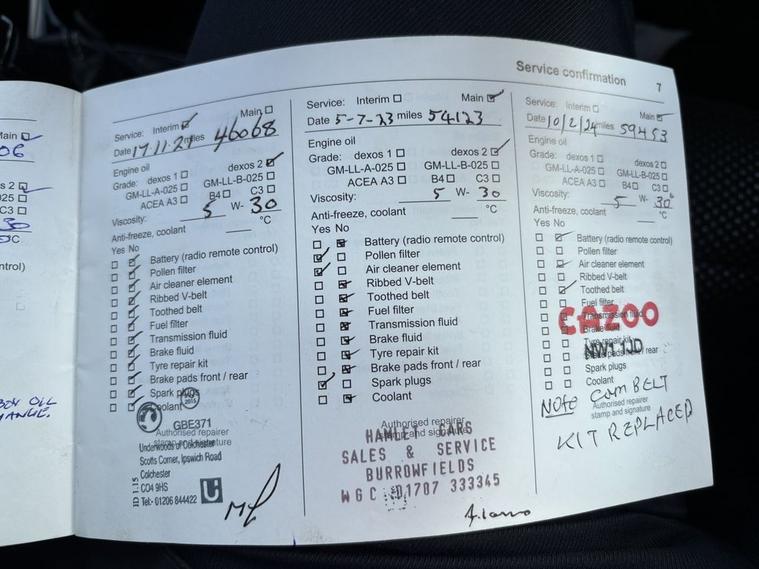 Service confirmation 7
ain
06
s 2
025
C3
30
°C
ntrol)
OIL
Service: Interim Main
Date 17.11.21 miles 46068
Engine oil
Grade: dexos 1 dexos 2
GM-LL-A-025 GM-LL-B-025
ACEA A3 B4 C3
Viscosity: 5 W- 30
Anti-freeze, coolant °C
Yes No
Battery (radio remote control)
Pollen filter
Air cleaner element
Ribbed V-belt
Toothed belt
Fuel filter
Transmission fluid
Brake fluid
Tyre repair kit
Brake pads front / rear
Spark plugs
Coolant
GBE371
Authorised repairer
stamp and signature
Underwoods of Colchester
Scotts Corner, Ipswich Road
Colchester
CO4 9HS
Tel:- 01206 844422
ID 1.15
Service: Interim Main
Date 5-7-23 miles 54123
Engine oil
Grade: dexos 1 dexos 2
GM-LL-A-025 GM-LL-B-025
ACEA A3 B4 C3
Viscosity: 5 W- 30
Anti-freeze, coolant °C
Yes No
Battery (radio remote control)
Pollen filter
Air cleaner element
Ribbed V-belt
Toothed belt
Fuel filter
Transmission fluid
Brake fluid
Tyre repair kit
Brake pads front / rear
Spark plugs
Coolant
Authorised repairer
stamp and signature
CARS
SALES & SERVICE
BURROWFIELDS
WGC 01707 333345
Service: Interim Main
Date 10/2/24 miles 59453
Engine oil
Grade: dexos 1 dexos 2
GM-LL-A-025 GM-LL-B-025
ACEA A3 B4 C3
Viscosity: 5 W- 30
Anti-freeze, coolant °C
Yes No
Battery (radio remote control)
Pollen filter
Air cleaner element
Ribbed V-belt
Toothed belt
Fuel filter
Transmission fluid
CAZOO
Brake fluid
Tyre repair kit
NW1 1JD
Brake pads front / rear
Spark plugs
Coolant
Authorised repairer
stamp and signature
Note CAMBELT
KIT REPLACED